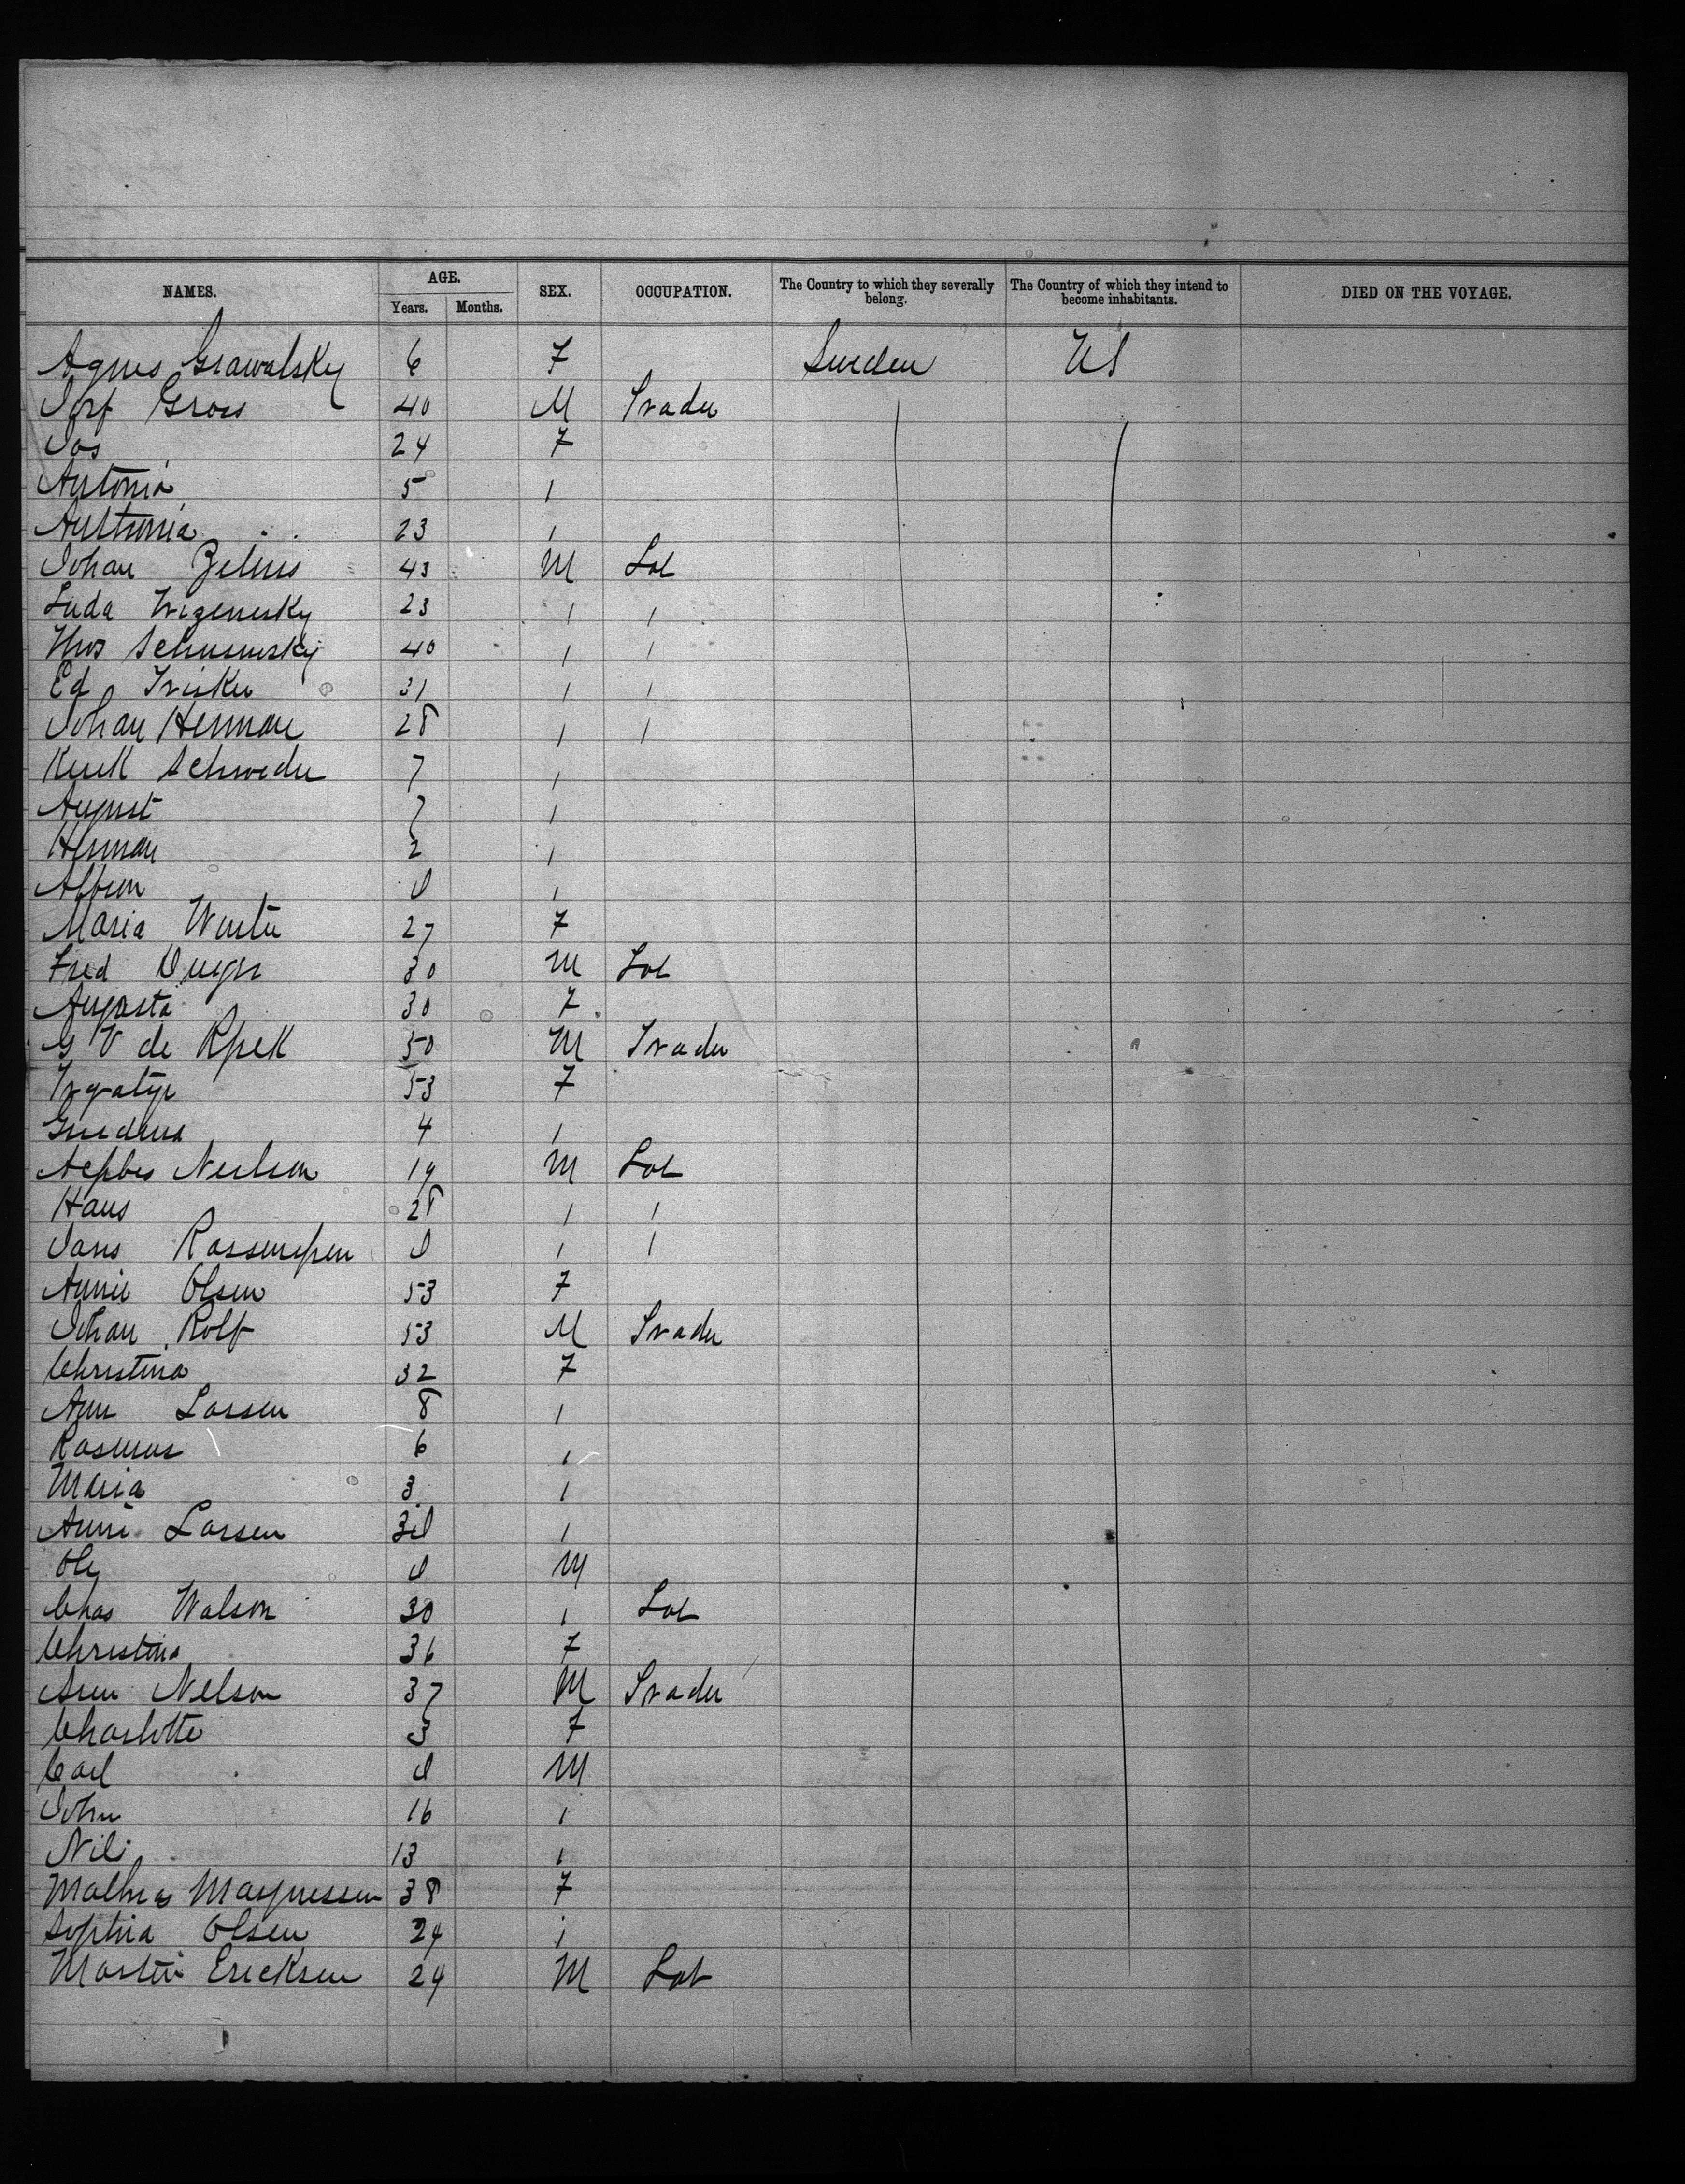 NAMES. AGE. SEX. OCCUPATION. The Country to which they severally belong. The Country of which they intend to become inhabitants. DIED ON THE VOYAGE.
Years. Months.
Agnes Grawalsky 6 F Sweden US
Gross 40 M Trader
Jos 24 F
Antonia 5 1
23 1
Johan Zelius 43 M Lab
23 1 1
Thos 40 1 1
Ed 31 1 1
Johan Herman 28 1 1
Schroeder 7 1
August 7 1
Herman 2 1
0 1
Maria Winter 27 F
Fred 30 M Lab
Augusta 30 F
G V de 50 M Trader
53 F
4 1
Neilson 19 M Lab
Hans 28 1 1
0 1 1
Annie Olsen 53 F
Johan Rolf 53 M Trader
Christina 32 F
Ann Larsen 8 1
Rasmus 6 1
Maria 3 1
Anni Larsen 30 1
Ole 0 M
Chas Walson 30 1 Lab
Christina 36 F
Nelson 37 M Trader
Charlotte 3 F
Carl 0 M
John 16 1
Nili 13 1
Magnessen 38 F
Sophia Olsen 24 1
Martin Ericksen 24 M Lab